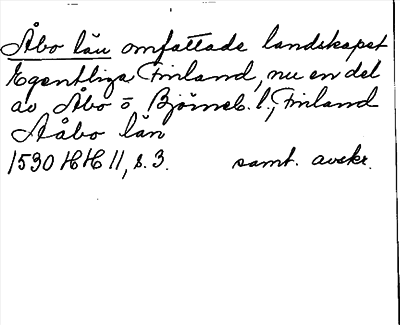 Åbo län omfattade landskapet
Egentliga Finland, nu en del
av Åbo o Björneb. l., Finland
Aåbo län
1530 HH II, s. 3. samt. avskr.